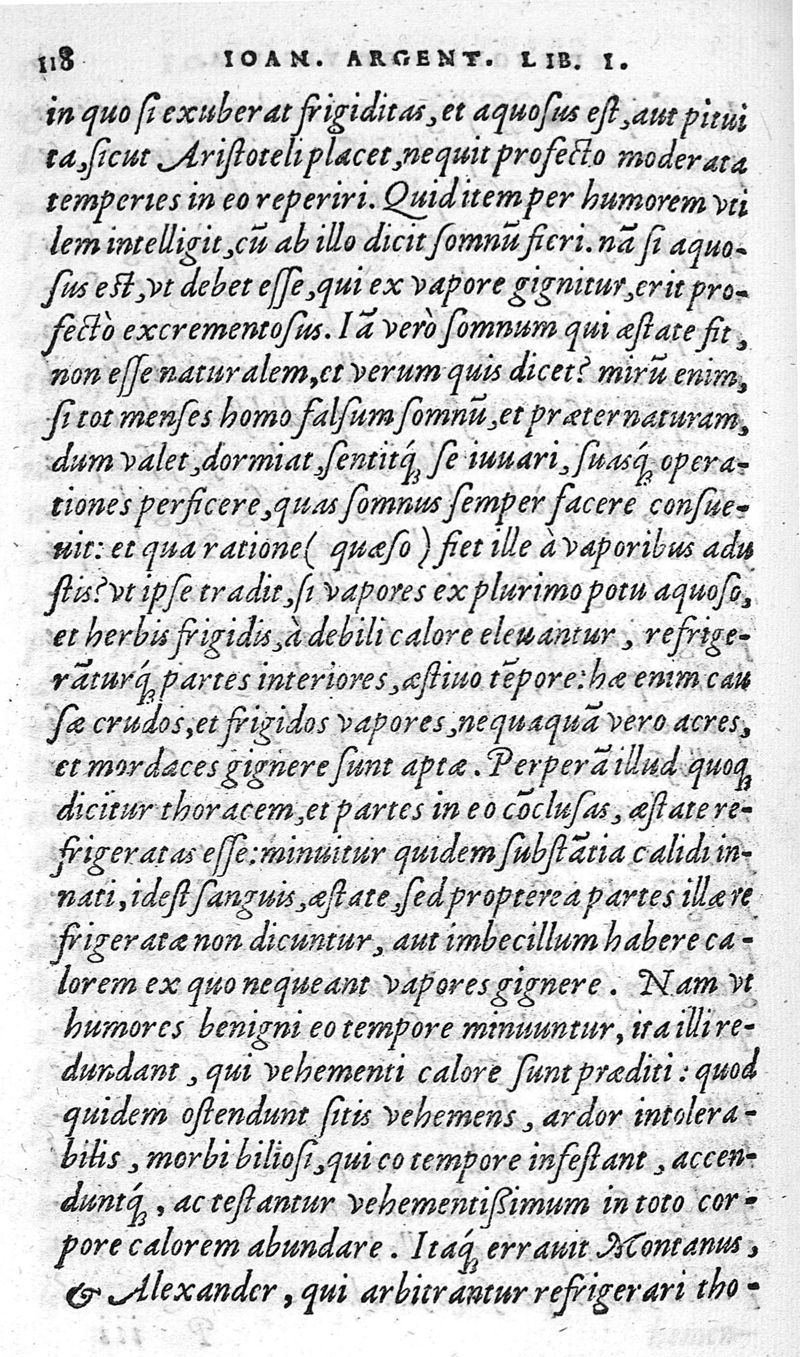 118 IOAN. ARGENT. LIB. I.
in quo si exuberat frigiditas, et aquosus est, aut pitui
ta, sicut Aristoteli placet, nequit profecto moderata
temperies in eo reperiri. Quid item per humorem vti
lem intelligit, cū ab illo dicit somnū fieri. nā si aquo-
sus est, vt debet esse, qui ex vapore gignitur, erit pro-
fectò excrementosus. Iā verò somnum qui æstate fit,
non esse naturalem, et verum quis dicet? mirū enim,
si tot menses homo falsum somnū, et præter naturam,
dum valet, dormiat, sentitq́; se iuuari, suasq́; opera-
tiones perficere, quas somnus semper facere consue-
uit: et qua ratione ( quæso ) fiet ille à vaporibus adu
stis? vt ipse tradit, si vapores ex plurimo potu aquoso,
et herbis frigidis, à debili calore eleuantur, refrige-
rāturq́; partes interiores, æstiuo tēpore: hæ enim cau
sæ crudos, et frigidos vapores, nequaquā vero acres,
et mordaces gignere sunt aptæ. Perperā illud quoq;
dicitur thoracem, et partes in eo cōclusas, æstate re-
frigeratas esse: minuitur quidem substātia calidi in-
nati, idest sanguis, æstate, sed propterea partes illæ re
frigeratæ non dicuntur, aut imbecillum habere ca-
lorem ex quo nequeant vapores gignere. Nam vt
humores benigni eo tempore minuuntur, ita illi re-
dundant, qui vehementi calore sunt præditi: quod
quidem ostendunt sitis vehemens, ardor intolera-
bilis, morbi biliosi, qui eo tempore infestant, accen-
duntq́;, ac testantur vehementißimum in toto cor-
pore calorem abundare. Itaq́; errauit Montanus,
& Alexander, qui arbitrantur refrigerari tho-